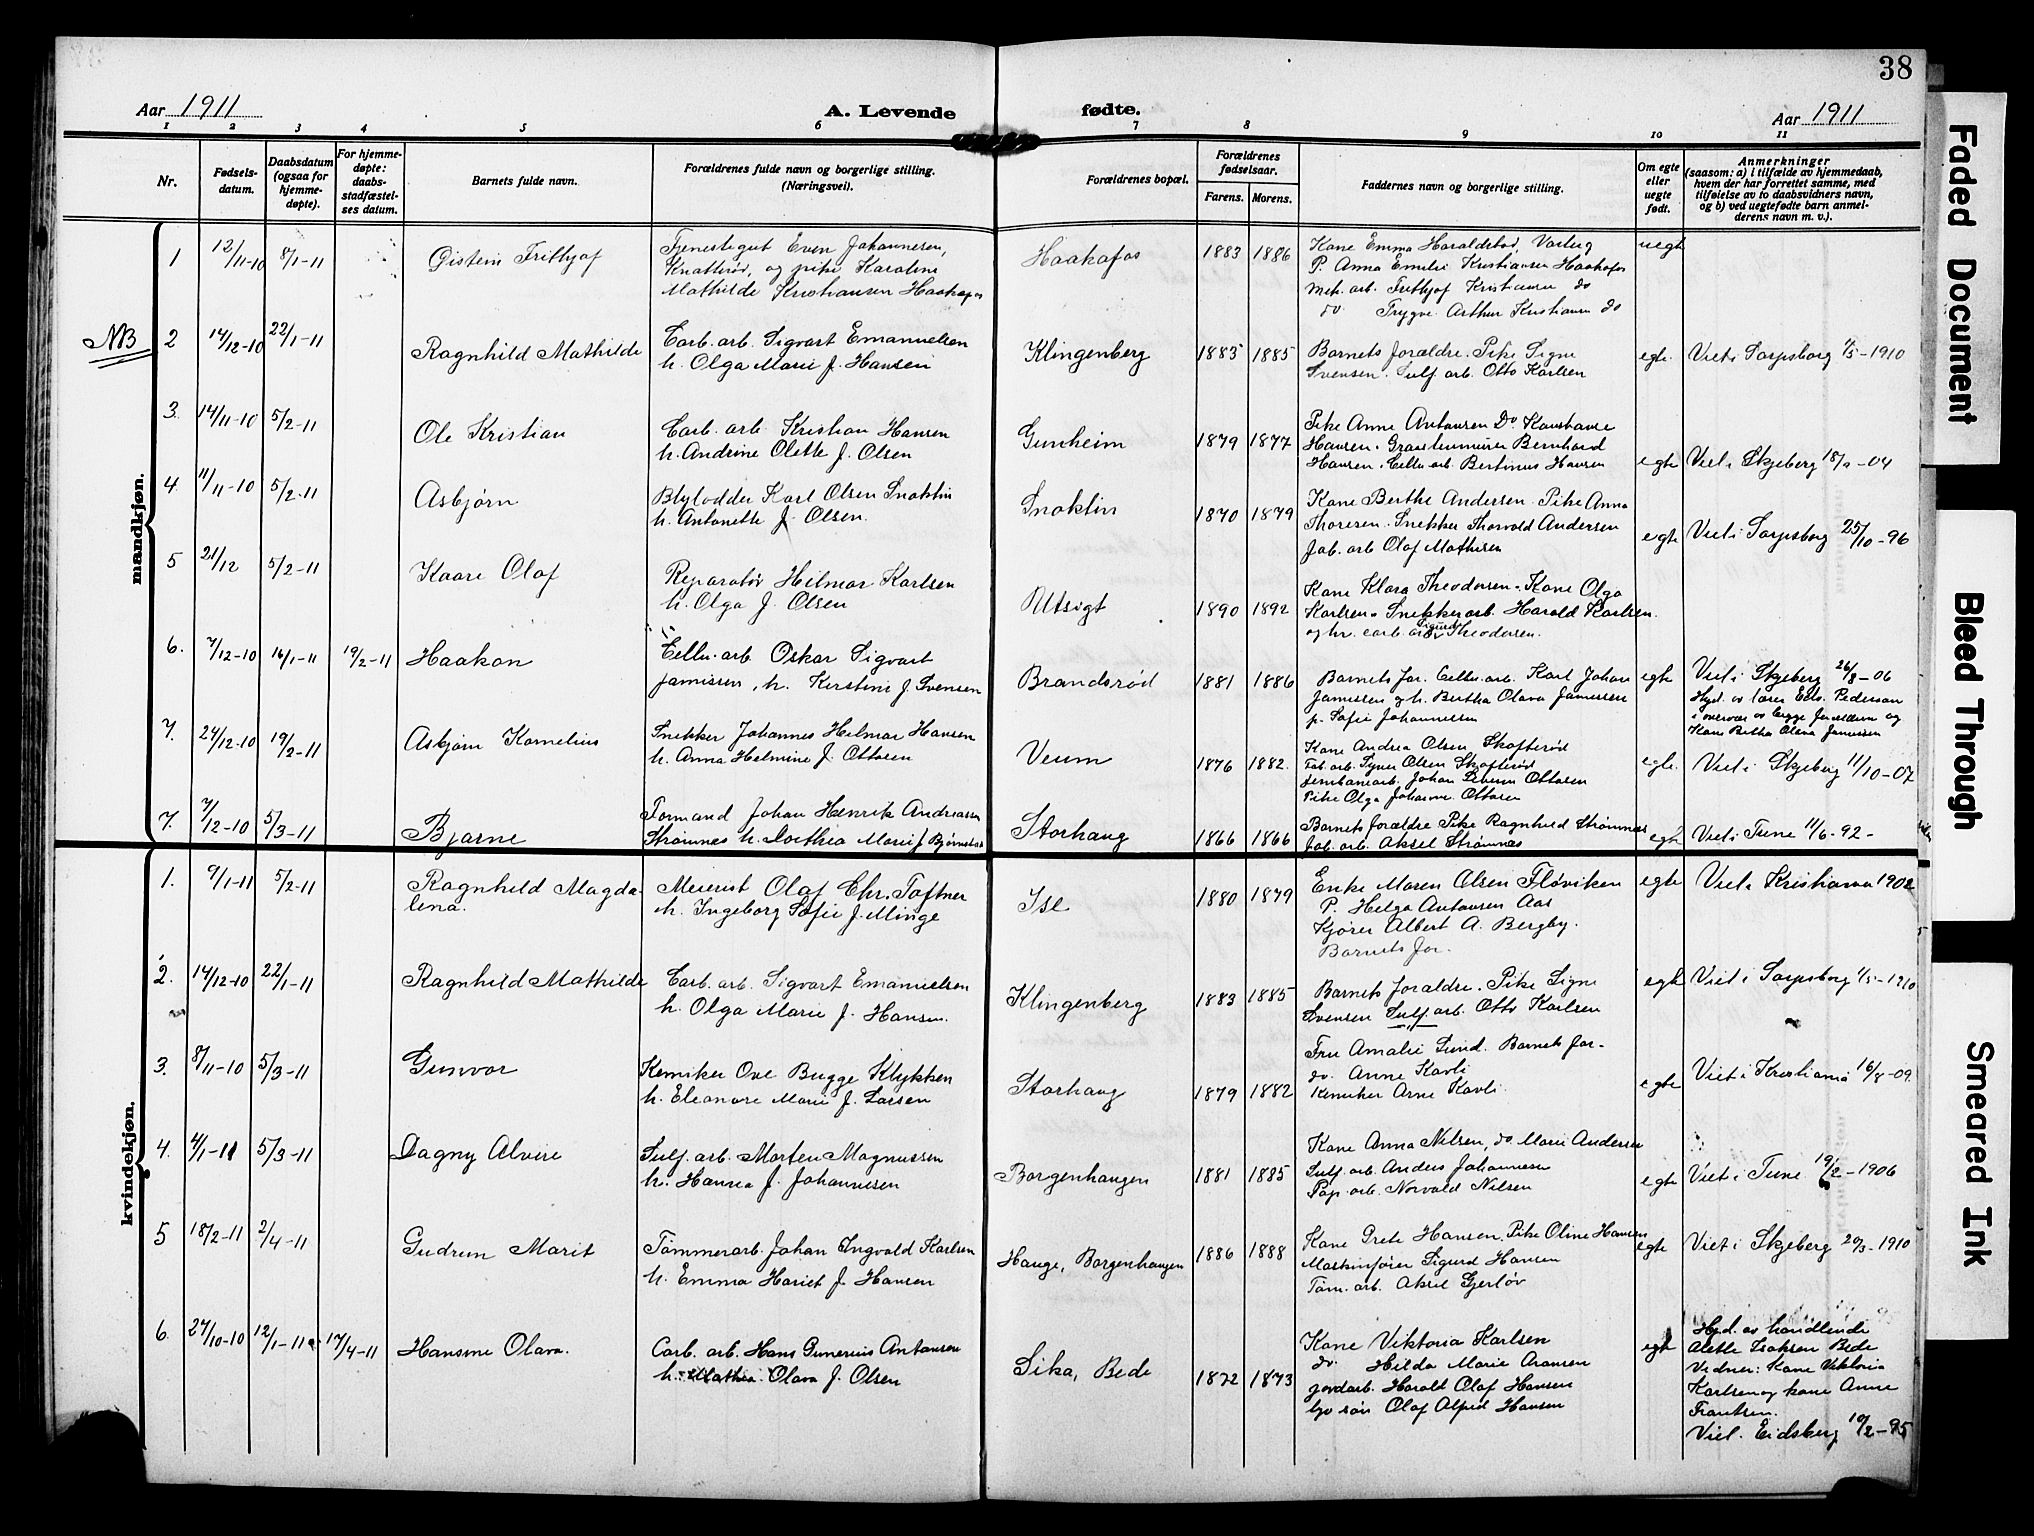 38
Aar 1911 A. Levende fødte. Aar 1911
1 2 3 4 5 6 7 8 9 10 11
Nr.
Fødsels-
datum.
Daabsdatum
(ogsaa for
hjemme-
døpte).
For hjemme-
døpte:
daabs-
stadfæstel-
ses datum.
Barnets fulde navn.
Forældrenes fulde navn og borgerlige stilling.
(Næringsvei).
Forældrenes bopæl.
Forældrenes
fødselsaar.
Farens. Morens.
Faddernes navn og borgerlige stilling.
Om egte
eller
uegte
født.
Anmerkninger
(saasom: a) i tilfælde av hjemmedaab,
hvem der har forrettet samme, med
tilføielse av to daabsvidners navn,
og b) ved uegtefødte barn anmel-
derens navn m. v.).
mandkjøn.
1 12/11-10 8/1-11 Øistein Frithjof
Tjenestegut Even Johannesen,
Knatterød, og pike Karoline
Mathilde Kristiansen Haakafos
Haakafos 1883 1886
Kone Emma Haraldstad, Varteig
P. Anna Emilie Kristiansen Haakafos
Mek. arb. Frithjof Kristiansen do
do Trygve Arthur Kristiansen do
uegte
NB
2 14/12-10 22/1-11 Ragnhild Mathilde
Carb. arb. Sigvart Emanuelsen
h. Olga Marie f. Hansen
Klingenberg 1883 1885
Barnets forældre. Pike Signe
Svensen. Sulf. arb. Otto Karlsen
egte Viet i Sarpsborg 1/5-1910
3. 14/11-10 5/2-11 Ole Kristian
Carb. arb. Kristian Hansen
h. Andrine Olette f. Olsen
Gunheim 1879 1877
Pike Anne Antonsen Do Konstanse
Hansen. Graastensmurer Bernhard
Hansen. Cellu. arb. Bertinus Hansen
egte Viet i Skjeberg -04
4. 11/11-10 5/2-11 Asbjørn
Blylodder Karl Olsen Snoklin
h. Antonette f. Olsen.
Snoklin 1870 1879
Kone Berthe Andersen. Pike Anna
Thoresen. Snekker Thorvald Andersen
Fab. arb Olaf Mathisen
egte Viet i Sarpsborg 25/10-96
5 21/12 5/2-11 Kaare Olaf
Reparatør Hilmar Karlsen
h. Olga f. Olsen
Utsigt 1890 1892
Kone Klara Theodorsen. Kone Olga
Karlsen. Snekkerarb. Harald Karlsen.
og hr. carb. arb Sigurd Theodorsen.
6. 7/12-10 16/1-11 19/2-11 Haakon
Cellu. arb Oskar Sigvart
Jamissen, h. Kirstine f. Svensen
Brandsrød 1881 1886
Barnets for. Cellu. arb. Karl Johan
Jamissen og h. Bertha Olava Jamissen
p. Sofie Johannessen
egte Viet i Skjeberg 26/8-06
Hjd. av lærer Edv. Pedersen
i overvær av begge forældrene og
Kone Betha Olava Jamissen
7. 24/12-10 19/2-11 Asbjørn Kornelius
Snekker Johannes Hilmar Hansen
h. Anna Helmine f. Ottosen
Veum 1876 1882.
Kone Andrea Olsen Skofterød
Fab. arb. Syver Olsen Skofterød
Jernbanearb. Johan Severin Ottosen
Pike Olga Johanne Ottosen
egte. Viet i Skjeberg 11/10-07
7. 7/12-10 5/3-11 Bjarne
Formand Johan Henrik Andreassen
Strømnes h. Dorthea Marie f Bjørnstad
Storhaug 1866 1866
Barnets forældre Pike Ragnhild Strømnes
Fab. arb. Aksel Strømnes
egte Viet i Tune 11/6-92-
kvindekjøn.
1. 9/1-11 5/2-11 Ragnhild Magda-
lena.
Meierist Olaf Chr. Toftner
h. Ingeborg Sofie f. Minge
Ise 1880 1879
Enke Maren Olsen Fløviken
P. Helga Antonsen Aas
Kjører Albert A. Bergby.
Barnets for.
egte Viet i Kristiania 1902
2. 14/12-10 22/1-11 Ragnhild Mathilde
Carb. arb. Sigvart Emanuelsen
h. Olga Marie f. Hansen.
Klingenberg 1883 1885
Barnets forældre. Pike Signe
Svensen Sulf. arb. Otto Karlsen
egte Viet i Sarpsborg 1/5-1910
3. 8/11-10 5/3-11 Gunvor
Kemiker Ove Bugge Klykken
h. Eleonore Marie f. Larsen
Storhaug 1879 1882
Fru Amalie Lund. Barnets for-
do. Anne Kavli
Kemiker Arne Kavli
egte Viet i Kristiania 16/8-09.
4. 4/1-11 5/3-11 Dagny Alvire
Sulf. arb. Morten Magnussen
h. Hanna f. Johannesen
Borgenhaugen 1881 1885
Kone Anna Nilsen, do. Marie Andersen
Sulf. arb. Anders Johannesen
Pap. arb. Norvald Nilsen
egte Viet i Tune 19/2-1906
5 18/2-11 2/4-11 Gudrun Marit
Tømmerarb. Johan Ingvald Karlsen
h. Emma Hariet f. Hansen
Hauge, Borgenhaugen 1886 1888
Kone Grete Hansen, Pike Oline Hansen
Maskinfører Sigurd Hansen
Tøm. arb. Aksel Gjerløv
egte Viet i Skjeberg 20/3-1910
6. 27/10-10 12/1-11 17/4-11 Hansine Olava.
Carb. arb. Hans Gunerius Antonsen
h. Mathea Olava f. Olsen
Sika, Bede 1872 1873
Kone Viktoria Karlsen
do. Hilda Marie Aronsen
gaardarb. Harald Olaf Hansen
Olaf Alfred Hansen
egte Hjd. av handlende
Alette Isaksen Bede
Vidner: Kone Viktoria
Karlsen og kone Anne
Frantsen.
Viet. Eidsberg 10/2-95
Faded Document
Bleed Through
Smeared Ink